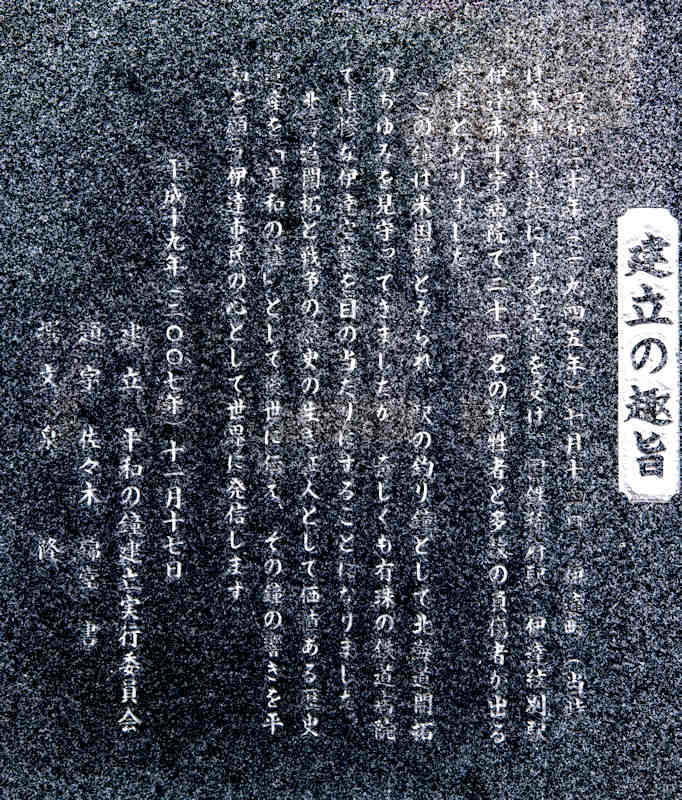 建立の趣旨
昭和二十年（一九四五年）七月十　　伊達町（当時）
は米軍　載機による空　を受け、国鉄稀府駅　伊達紋別駅
伊達赤十字病院で二十一名の犠牲者と多数の負傷者が出る
となりました
この鐘は米国製とみられ、駅の釣り鐘として北海道開拓
のあゆみを見守ってきましたが　しくも有珠の鉄道病院
で悲惨な伊達空襲を目の当たりにすることになりました
北海道開拓と戦争の歴史の生き証人として価値ある歴史
産を「平和の鐘」として後世に伝え、その鐘の響きを平
和を願う伊達市民の心として世界に発信します
平成十九年（二〇〇七年）十一月十七日
建立　平和の鐘建立実行委員会
題字　佐々木　　書
撰文　泉　隆